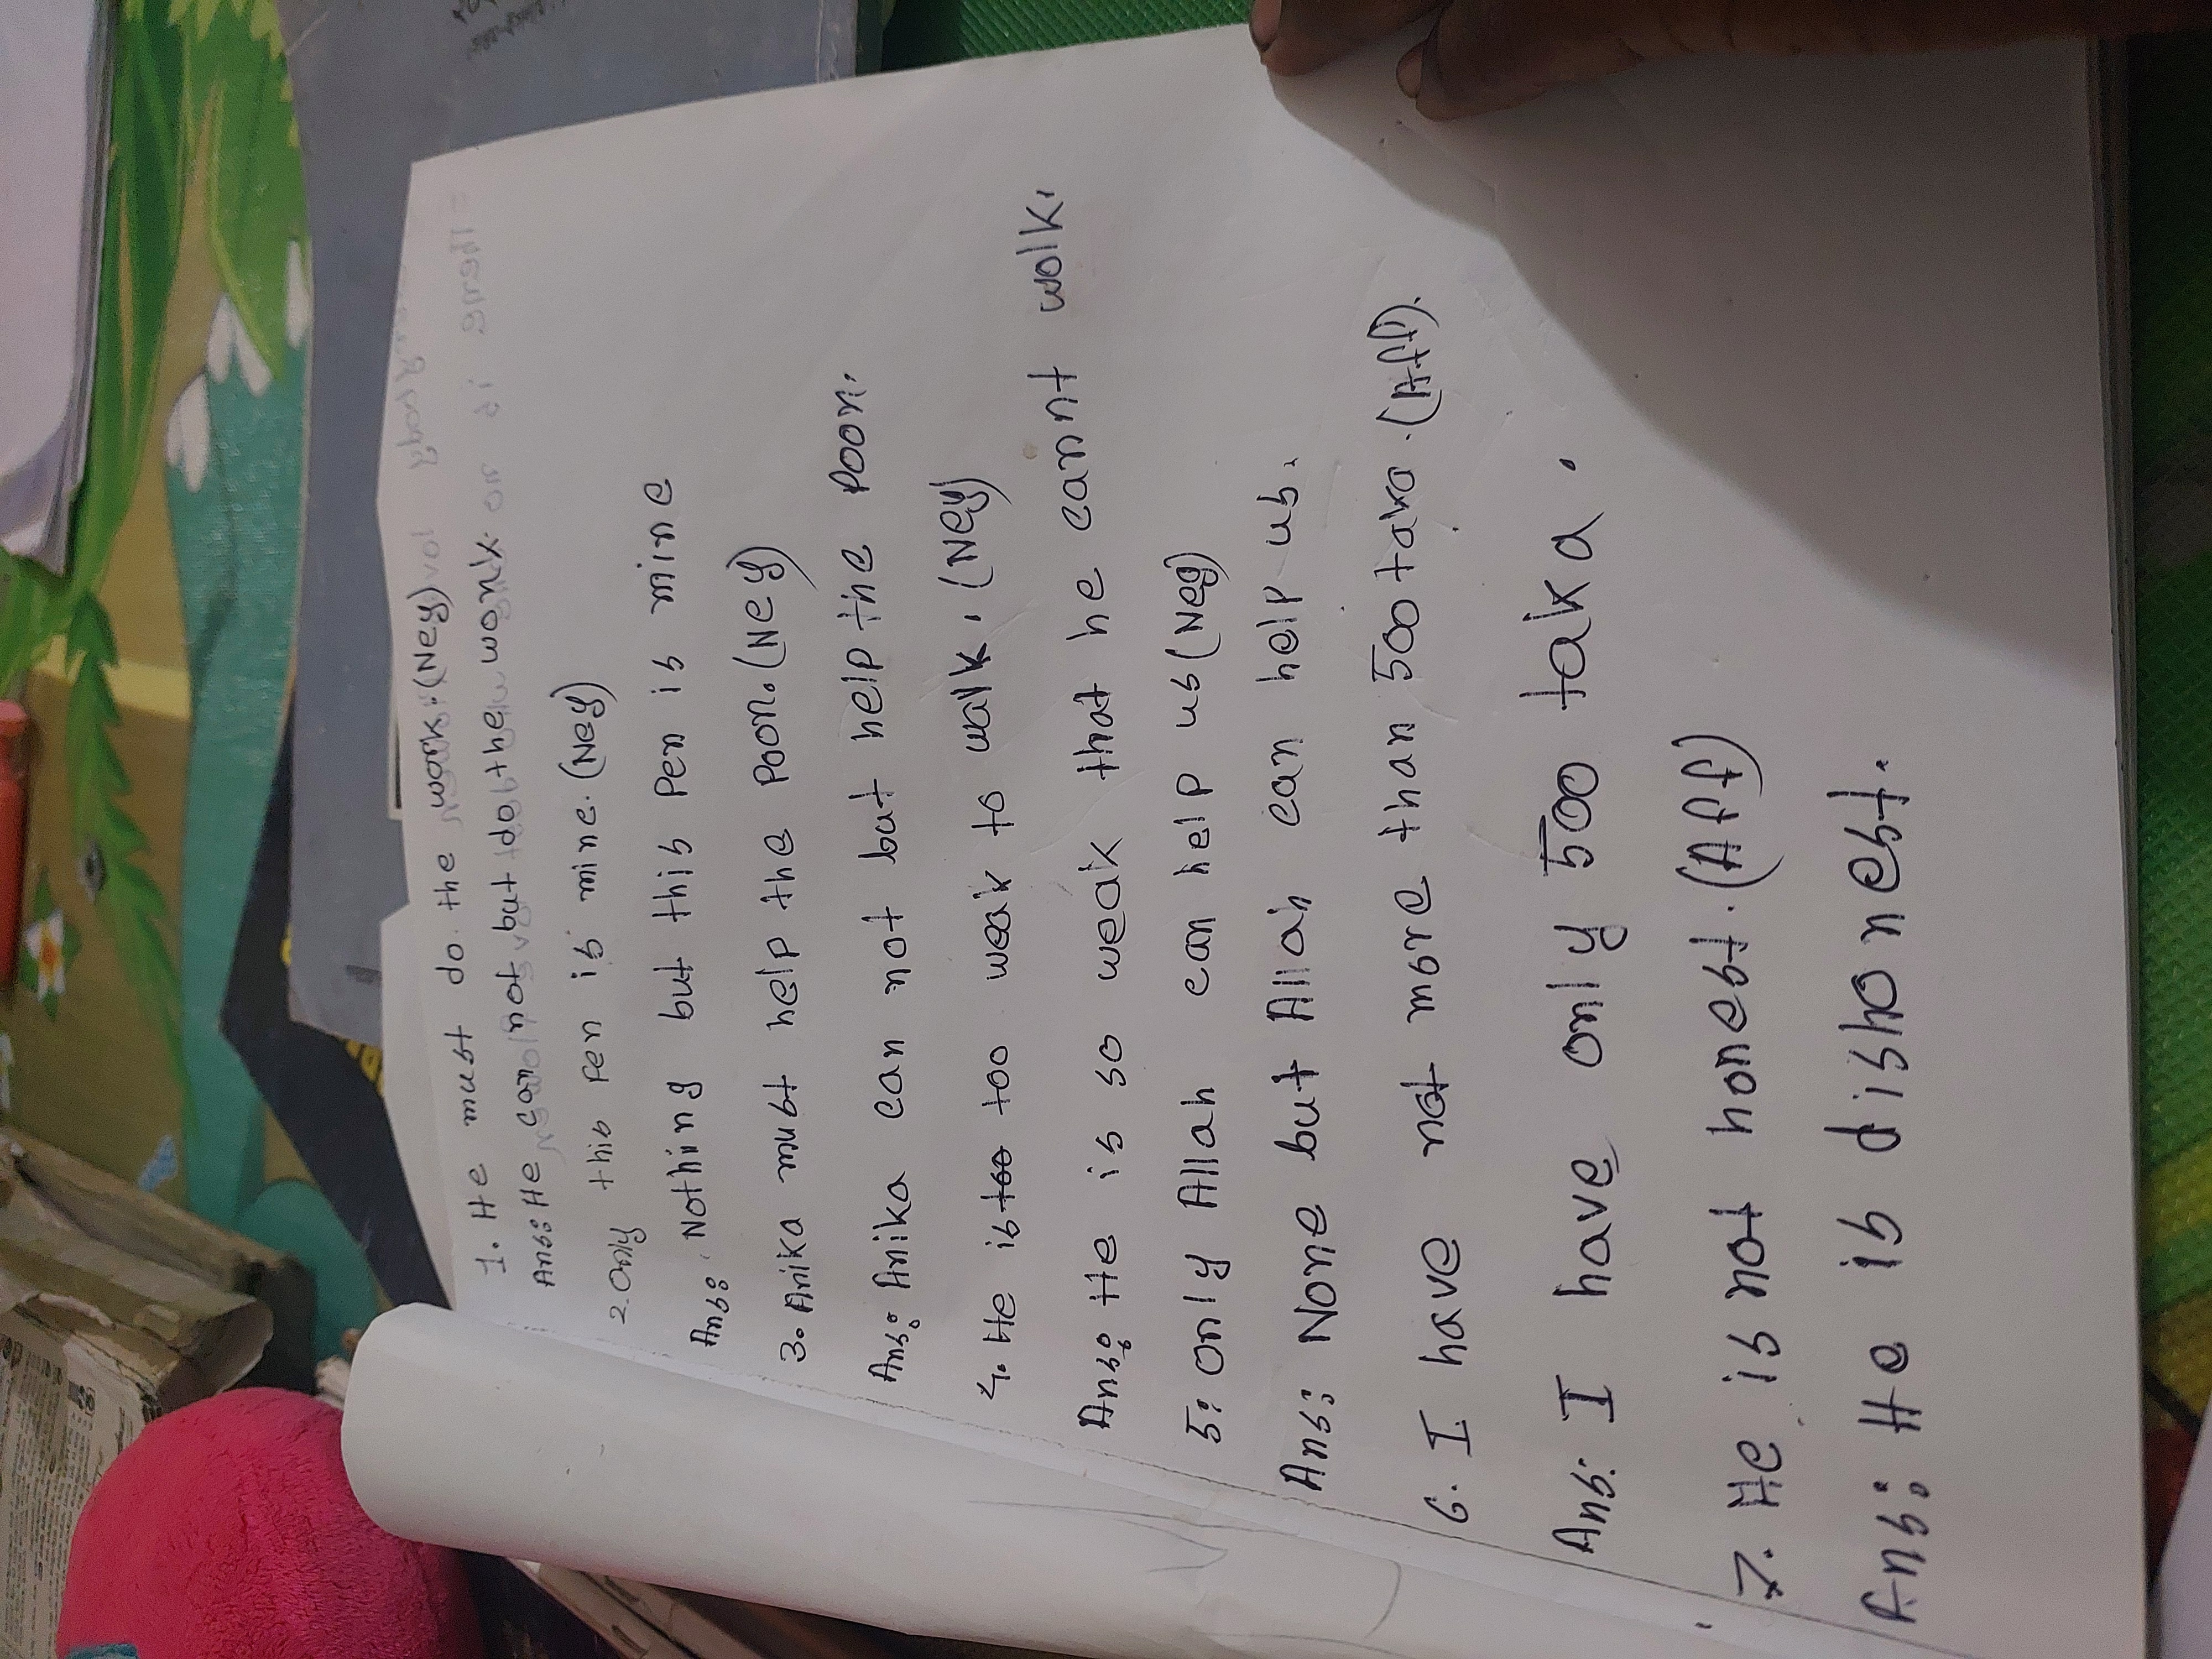 1. He must do the work. (Neg)
Ans: He can not but do the work.
2. Only this Pen is mine. (Neg)
Ans: Nothing but this Pen is mine
3. Anika must help the Poor. (Neg)
Ans: Anika can not but help the Poor.
4. He is too too weak to walk. (Neg)
Ans: He is so weak that he cannt wolk.
5: Only Allah can help us (Neg)
Ans: None but Allah can help us.
6. I have not more than 500 taka. (Aff).
Ans: I have only 500 taka.
7. He is not honest. (Aff)
Ans: He is dishonest.